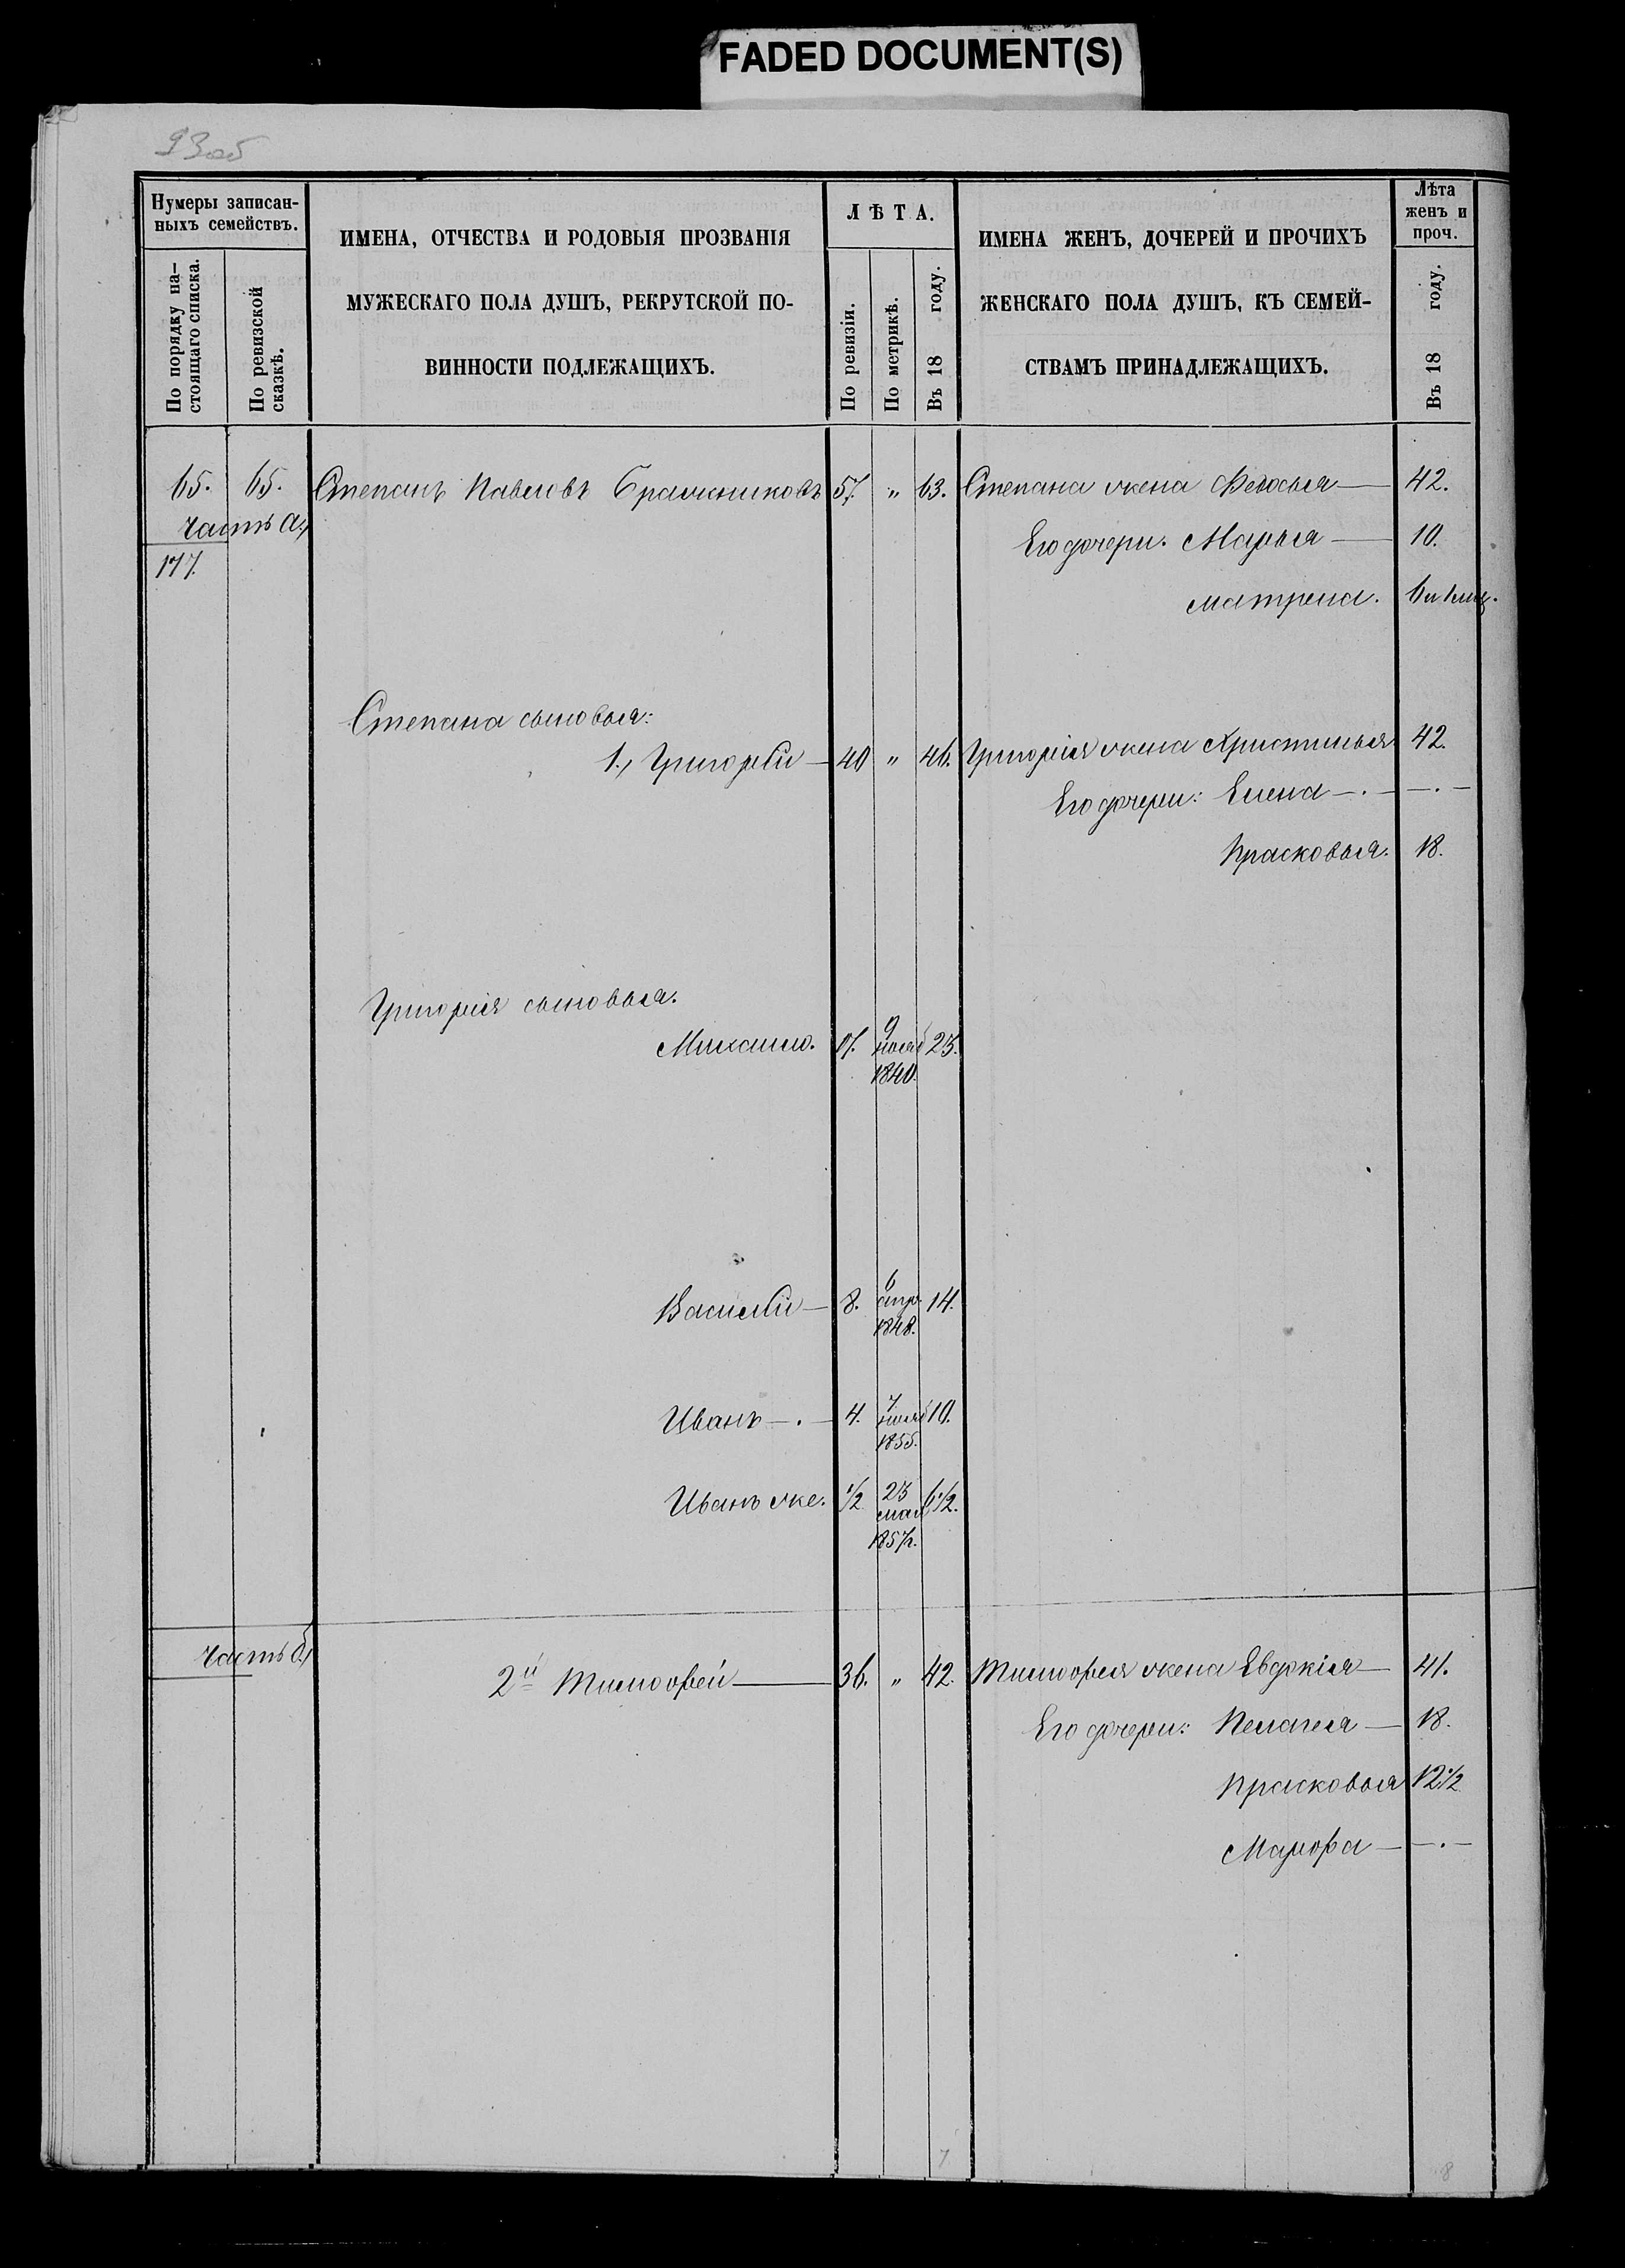 FADED DOCUMENT(S)
93об
Нумеры записан-
ныхъ семействъ.
По порядку на-
стоящаго списка.
По ревизской
сказкѣ.
ИМЕНА, ОТЧЕСТВА И РОДОВЫЯ ПРОЗВАНІЯ
МУЖЕСКАГО ПОЛА ДУШЪ, РЕКРУТСКОЙ ПО-
ВИННОСТИ ПОДЛЕЖАЩИХЪ.
ЛѢТА.
По ревизіи.
По метрикѣ.
Въ 18 году.
ИМЕНА ЖЕНЪ, ДОЧЕРЕЙ И ПРОЧИХЪ
ЖЕНСКАГО ПОЛА ДУШЪ, КЪ СЕМЕЙ-
СТВАМЪ ПРИНАДЛЕЖАЩИХЪ.
Лѣта
женъ и
проч.
Въ 18 году.
65. 65. Степанъ Павловъ 57. " 63. Степана жена Федосья — 42.
Часть а,)
Его дочери: Марья — 10.
177.
Матрена. 6 и 1 мѣс.
Степана сыновья:
1., Григорій — 40 " 46. Григорія жена Христинья 42.
Его дочери: Елена —.— —.—
Прасковья. 18.
Григорія сыновья.
Михайло. 17. 9 нояб 1840. 23.
Василій — 8. 6 апр. 1848. 14.
Иванъ —.— 4. 7 нояб 1855. 10.
Иванъ же. 1/2 23 мая 1857г. 6 1/2.
Часть б,)
2й Тимофей — 36. " 42. Тимофея жена Евдокія — 41.
Его дочери: Пелагея — 18.
Прасковья 12 1/2
Марфа — —.—
7
8